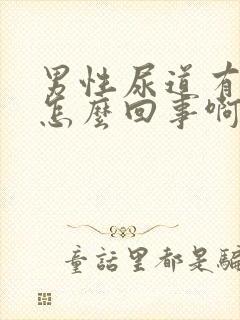 男性尿道有
怎麼回事啊
童話里都是騙